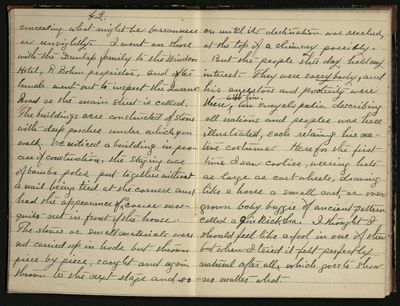 42.
concealing what might be barrenness
or unsightly. I went on shore
with the Dunlap family to the Windsor
Hotel, R Bohm proprietor, and after
lunch went out to inspect the Queens
Road as the main street is called.
The buildings are constructed of stone
with deep porches under which you
walk. We noticed a building in pro-
cess of construction, the staging was
of bamboo poles put together without
a nail being tied at the corners and
had the appearance of coarse mos-
quito net in front of the house.
The stones or small materials were
not carried up in hods but thrown
piece by piece, caught and again
thrown to the next stage and so
on until its destination was reached,
at the top of a chimney possibly.
But the people that day held my
interest. They were every body, and
his ancestors and posterity were
there, with him encyclopedia describing
all nations and peoples was here
illustrated, each retaining his na-
tive costume. Here for the first
time I saw coolies, wearing hats
as large as cart wheels, drawing
like a horse a small cart, or over
grown baby buggie of ancient pattern
called a Jinrickisha. I thought I
should feel like a fool in one of them
but when I tried it felt perfectly
natural after all, which goes to show
no matter what